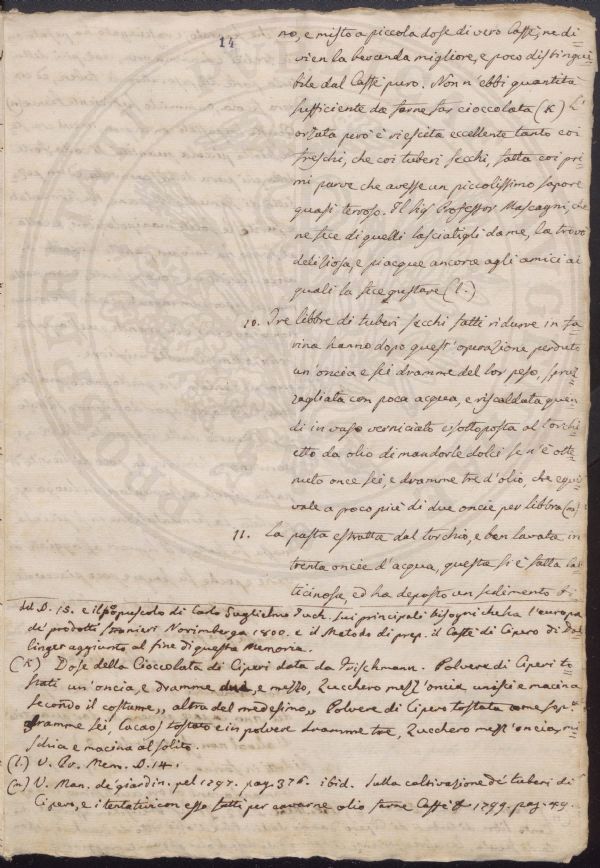 14
no, e misto a piccola dose di vero Caffè, ne di=
vien la bevanda migliore, e poco distingui=
bile dal Caffè puro. Non n'ebbi quantità
sufficiente da farne far cioccolata (K) L'
orzata però è riescita eccellente tanto coi
freschi, che coi tuberi secchi, fatta coi pri=
mi parve che avesse un piccolissimo sapore
quasi terroso. Il Sig Professor Mascagni, che
ne fece di quelli lasciatigli da me, la trovò
deliziosa, e piacque ancora agli amici ai
quali la fece gustare (l.)
10. Tre libbre di tuberi secchi fatti ridurre in fa=
rina hanno dopo quest'operazione perduto
un'oncia e sei dramme del lor peso, spruz=
zagliata con poca acqua, e riscaldata quin=
di in vaso verniciato e sottoposta al torchi=
etto da olio di mandorle dolci se n'è otte=
nuto once sei, e dramme tre d'olio, che equi=
vale a poco più di due oncie per libbra (m)
11. La pasta estratta dal torchio, e ben lavata in
trenta oncie d'acqua, questa si è fatta lat=
ticinosa, ed ha deposto un sedimento
del D. 15. e il opuscolo di Carlo Guglielmo sui principali bisogni che ha l'europa
de' prodotti stranieri Norimberga 1800. e il Metodo di prep. il Caffè di Cipero di
linger aggiunto al fine di questa Memoria.
(K) Dose della Cioccolata di Ciperi data da Frischmann. Polvere di Ciperi to=
stati un'oncia, e dramme due, e mezzo, Zucchero mezz'oncia unisci e macina
secondo il costume,, altra del medesimo,, Polvere di Cipero tostata come sop.a
dramme sei, Cacao tostato e in polvere dramme tre, Zucchero mezz'oncia, mi=
schia e macina al solito.
(l.) V. Mem. D. 14.
(m) V. Man. de' giardin. pel 1797. pag. 376. ibid. sulla coltivazione de' tuberi di
Cipero, e i tentativi con esso fatti per cavarne olio farne Caffè 1799. pag. 49.